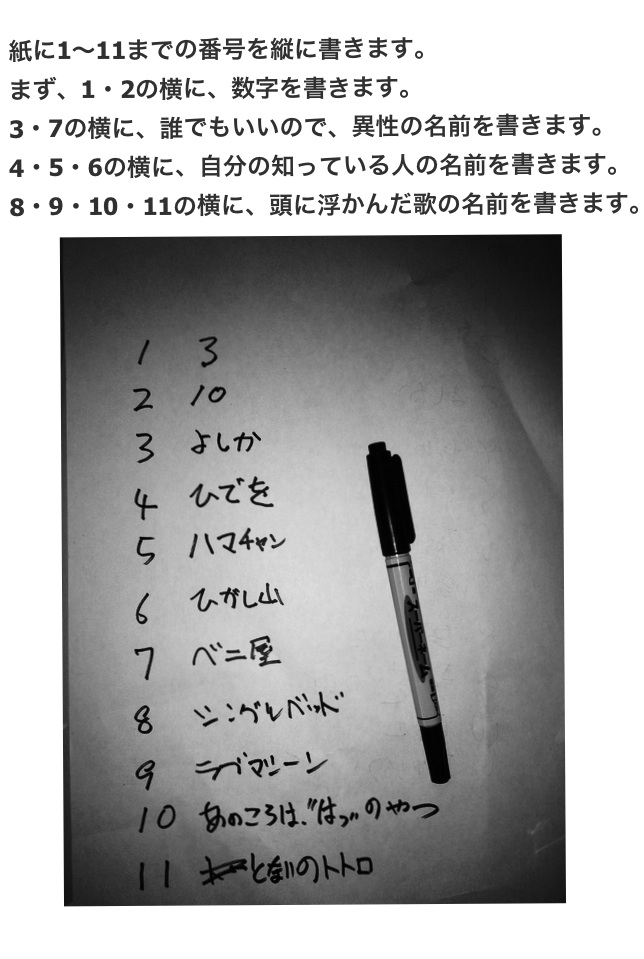 紙に1〜11までの番号を縦に書きます。
まず、1・2の横に、数字を書きます。
3・7の横に、誰でもいいので、異性の名前を書きます。
4・5・6の横に、自分の知っている人の名前を書きます。
8・9・10・11の横に、頭に浮かんだ歌の名前を書きます。
1 3
2 10
3 よしか
4 ひでを
5 ハマチャン
6 ひがし山
7 ベニ屋
8 シングルベッド
9 ラブマシーン
10 あのころは、"はっ"のやつ
11 となりのトトロ